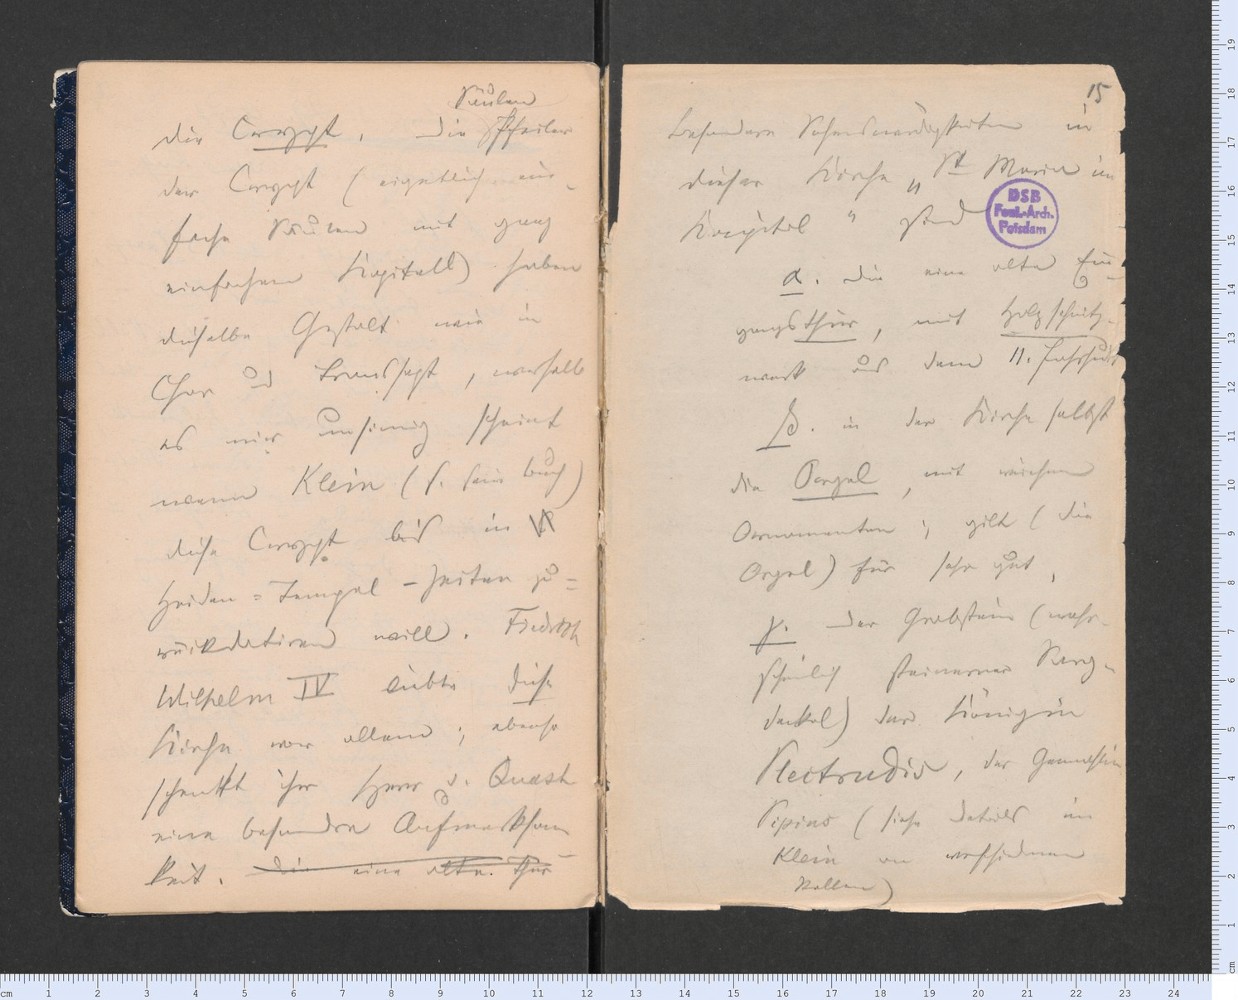 Säulen
die Crrypt, die Pfeiler
der Crrypt (eigentlich ein-
fache Säulen mit ganz
einfachem Kapitäll) haben
dieselbe Gestalt wie in
Chor und Transsept, weshalb
es mir unsinnig scheint
wenn Klein (s. sein Buch)
diese Crrypt bis in
Heiden-Tempel-Zeiten zu=
rückdatiren will. Friedrich
Wilhelm IV liebte diese
Kirche vor allem; ebenso
schenkt ihr Herr v. Quast
eine besondre Aufmerksam
keit. Die eine alte Thür
15
Besondere Sehenswürdigkeiten in
dieser Kirche „St Maria im
Kapitol" sind
DSB
Font.-Arch.
Potsdam
α. die eine alte Ein-
gangsthür, mit Holzschnitz-
werk aus dem 11. Jahrhund
β. in der Kirche selbst
die Orgel, mit reichen
Ornamenten; gilt (die
Orgel) für sehr gut,
γ. der Grabstein (wahr-
scheinlich steinerner Sarg-
deckel) der Königin
Plectrudis, der Gemahlin
Pipins (siehe Details im
Klein an verschiednen
Stellen)